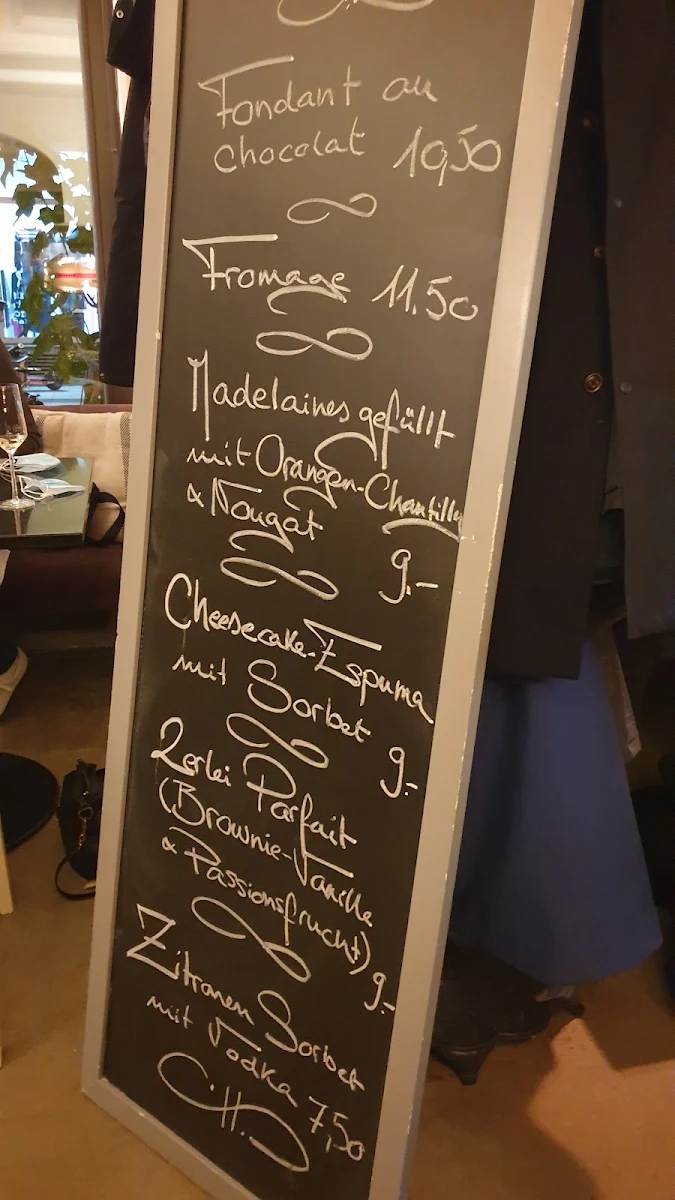 Fondant au
chocolat 10,50
Fromage 11.50
Madelaines gefüllt
mit Orangen-Chantilly
& Nougat
9.-
Cheesecake-Espuma
mit Sorbet 9.-
2erlei Parfait
(Brownie-Vanille
& Passionsfrucht) 9.-
Zitronen Sorbet
mit Vodka 7,50
C.H.